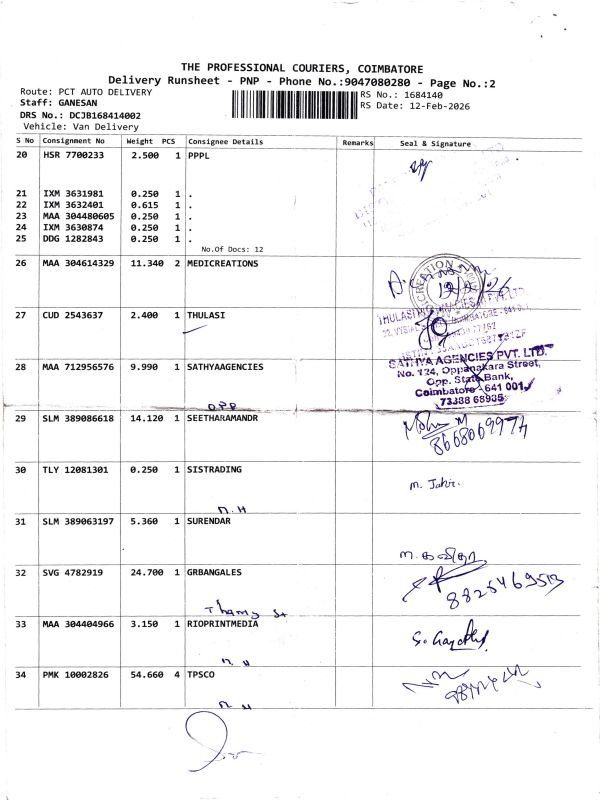 THE PROFESSIONAL COURIERS, COIMBATORE
Delivery Runsheet - PNP - Phone No.:9047080280 - Page No.:2
Route: PCT AUTO DELIVERY
RS No.: 1684140
Staff: GANESAN
RS Date: 12-Feb-2026
DRS No.: DCJB168414002
Vehicle: Van Delivery
S No Consignment No Weight PCS Consignee Details Remarks Seal & Signature
20 HSR 7700233 2.500 1 PPPL
21 IXM 3631981 0.250 1 .
22 IXM 3632401 0.615 1 .
23 MAA 304480605 0.250 1 .
24 IXM 3630874 0.250 1 .
25 DDG 1282843 0.250 1 .
No.Of Docs: 12
26 MAA 304614329 11.340 2 MEDICREATIONS
27 CUD 2543637 2.400 1 THULASI
28 MAA 712956576 9.990 1 SATHYAAGENCIES
SATHYA AGENCIES PVT. LTD.
No. 124, Oppanakara Street,
Opp. State Bank,
Coimbatore - 641 001.
73388 68935
O.P.P
29 SLM 389086618 14.120 1 SEETHARAMANDR
8668069974
30 TLY 12081301 0.250 1 SISTRADING
M. Jakir.
N. H
31 SLM 389063197 5.360 1 SURENDAR
ம. கவிதா
32 SVG 4782919 24.700 1 GRBANGALES
8825469513
33 MAA 304404966 3.150 1 RIOPRINTMEDIA
N H
34 PMK 10002826 54.660 4 TPSCO
N H